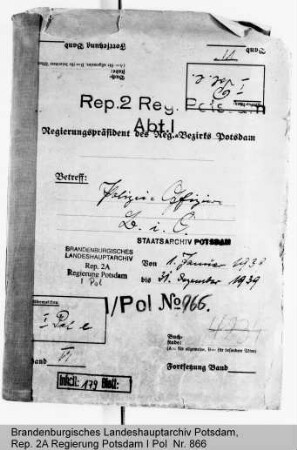 Fortsetzung Band
Band
VI
I Pol e.
Rep. 2 Reg. Potsdam
Abt. I
Regierungspräsident des Reg.-Bezirks Potsdam
Betreff:
Polizei-Offiziere
STAATSARCHIV POTSDAM
BRANDENBURGISCHES
LANDESHAUPTARCHIV
Rep. 2A
Regierung Potsdam
I Pol
Von 1. Januar 1938
bis 31. Dezember 1939
I/Pol No 966.
I Pol e
Buch-
stabe:
(A = für allgemeine, B = für besondere Akten)
Band VI
Fortsetzung Band
Inhalt: 179 Blatt.
Brandenburgisches Landeshauptarchiv Potsdam,
Rep. 2A Regierung Potsdam I Pol Nr. 866